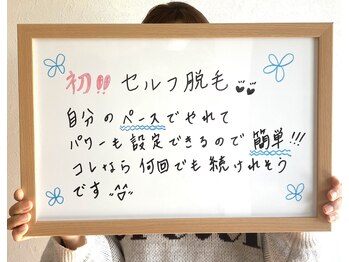 初!! セルフ脱毛
自分のペースでやれて
パワーも設定できるので簡単!!!
コレなら何回でも続けれそう
です